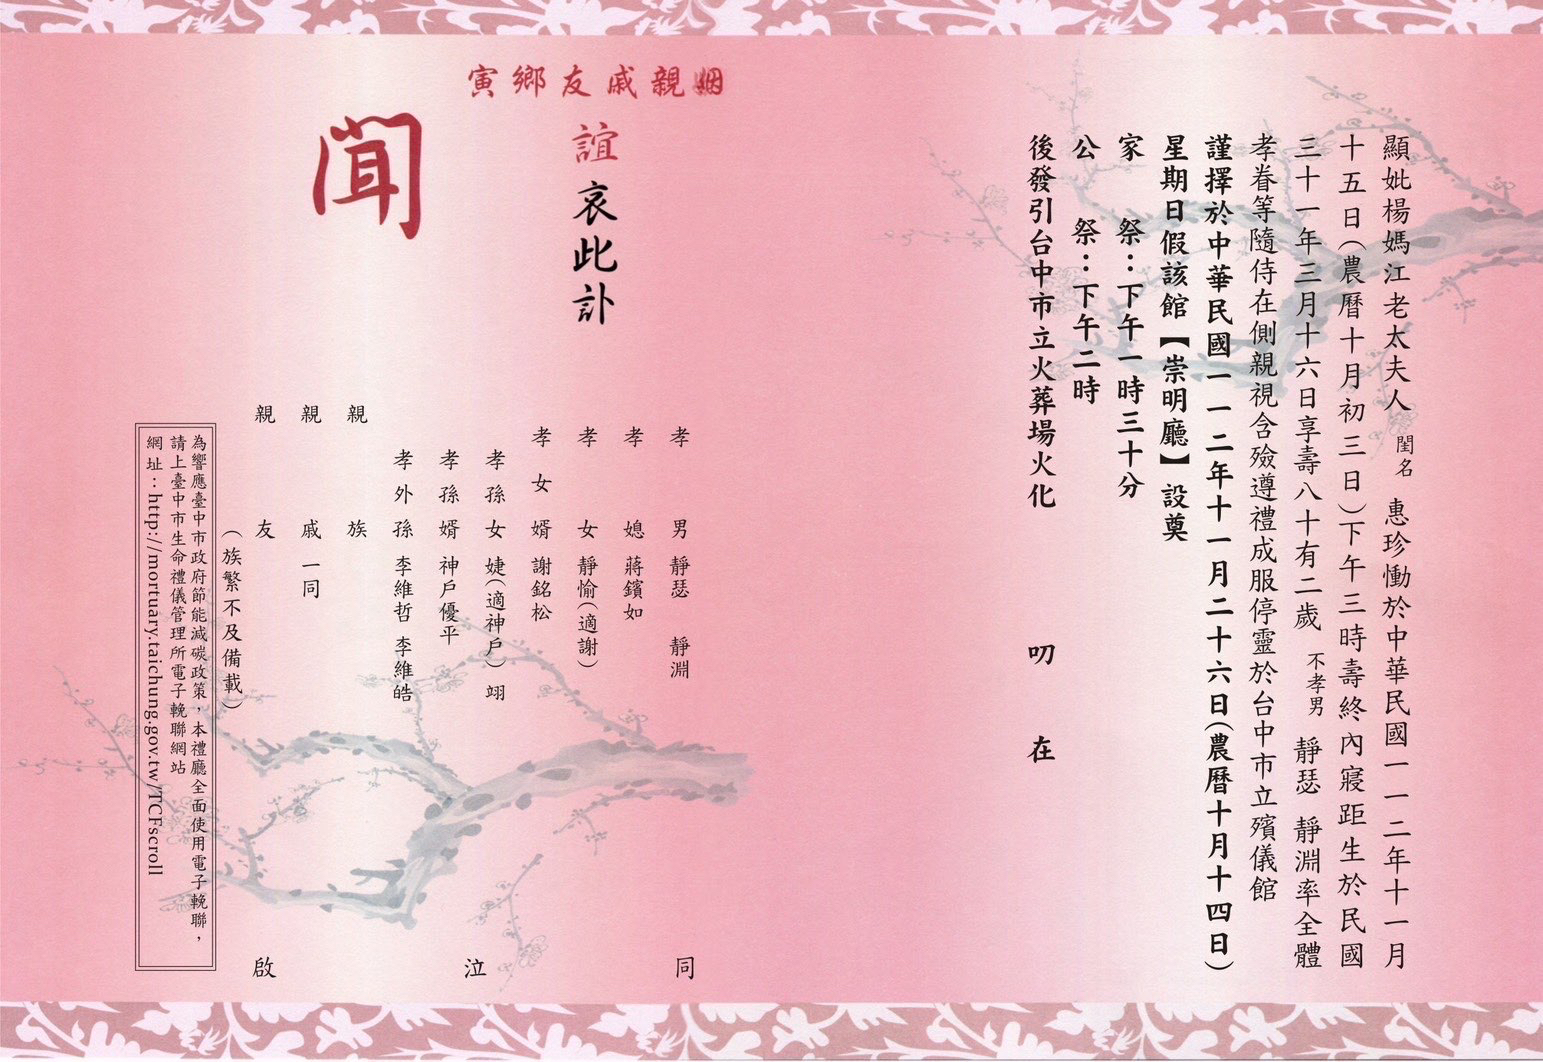 顯妣楊媽江老太夫人 閨名 惠珍慟於中華民國一一二年十一月
十五日(農曆十月初三日)下午三時壽終內寢距生於民國
三十一年三月十六日享壽八十有二歲 不孝男 靜瑟 靜淵率全體
孝眷等隨侍在側親視含殮遵禮成服停靈於台中市立殯儀館
謹擇於中華民國一一二年十一月二十六日(農曆十月十四日)
星期日假該館【崇明廳】設奠
家 祭:下午一時三十分
公 祭:下午二時
後發引台中市立火葬場火化
叨 在
姻親戚友鄉寅
誼哀此訃
聞
孝 男 靜瑟 靜淵
孝 媳 蔣鑌如
孝 女 靜愉(適謝)
孝 女 婿 謝銘松
孝 孫 女 婕(適神戶) 翊
孝 孫 婿 神戶優平
孝 外 孫 李維哲 李維皓
親 族
親 戚 一同
親 友
(族繁不及備載)
同 泣 啟
為響應臺中市政府節能減碳政策,本禮廳全面使用電子輓聯,
請上臺中市生命禮儀管理所電子輓聯網站
網址:http://mortuary.taichung.gov.tw/TCFscroll